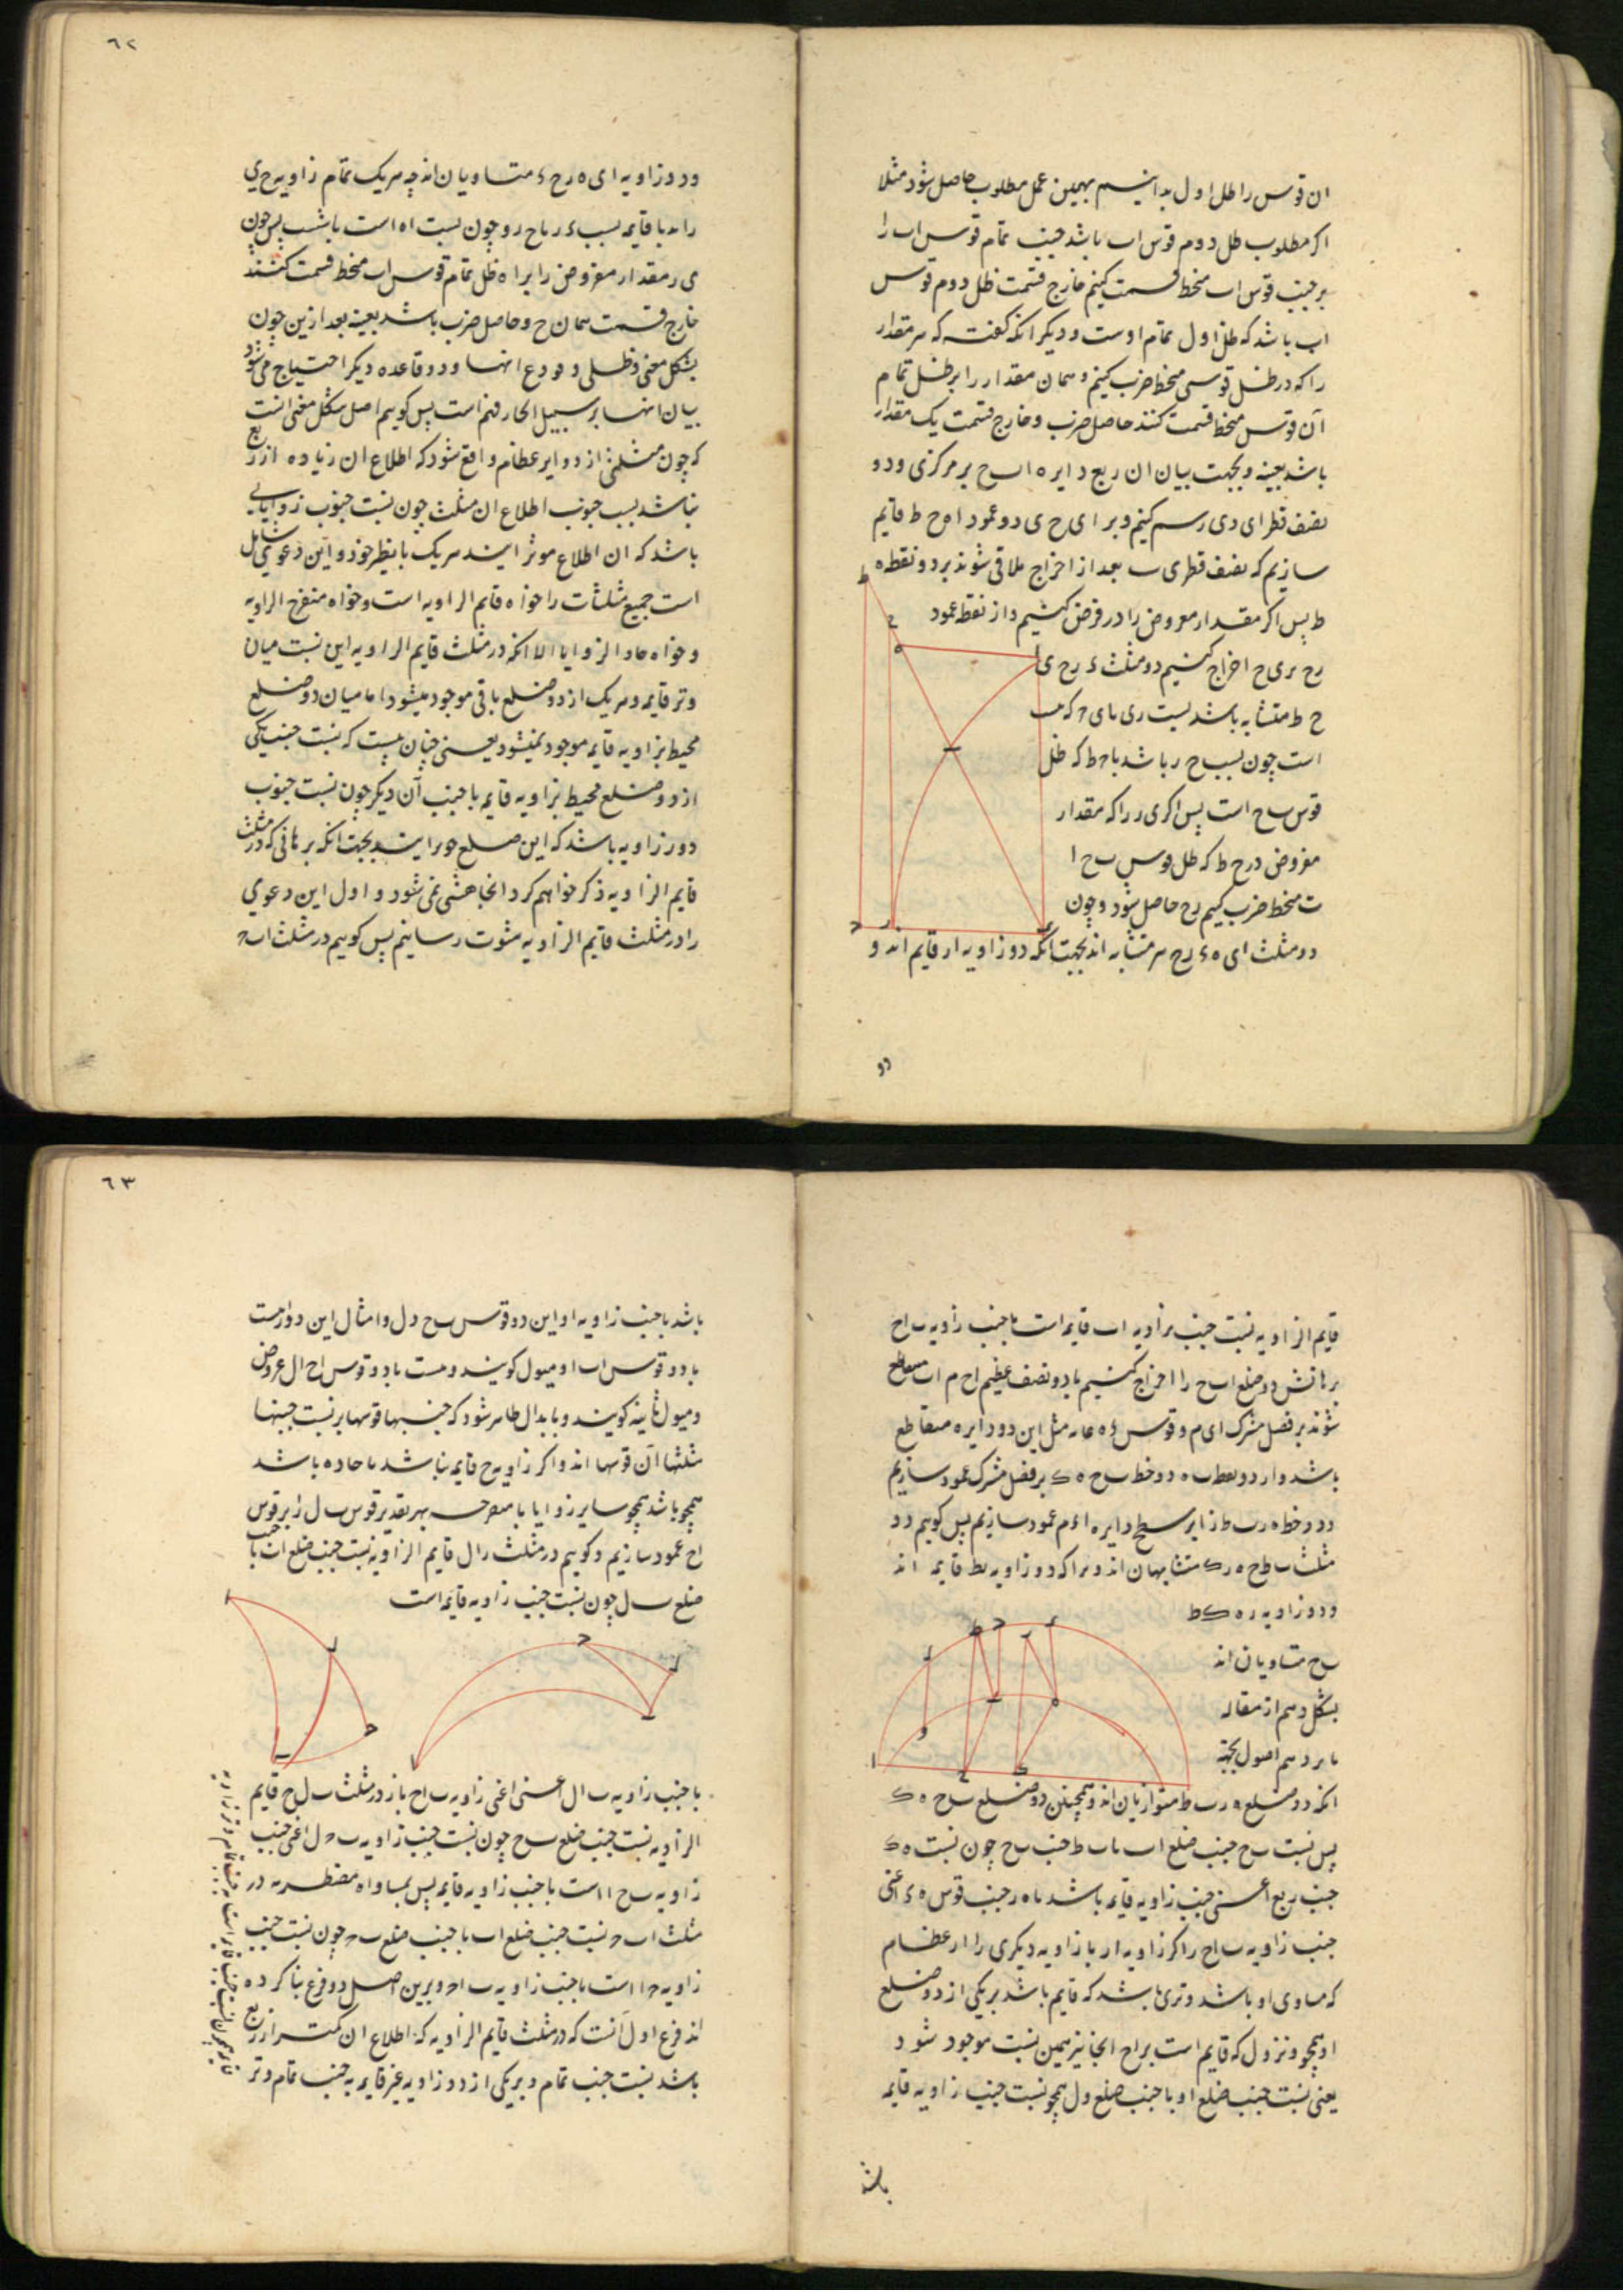 ان قوس را ظل اول بدانیم بهمین عمل مطلوب حاصل شود مثلا
اکر مطلوب ظل دوم قوس اب باشد جیب تمام قوس اب را
بر جیب قوس اب منحط قسمت کنیم خارج قسمت ظل دوم قوس
اب باشد که ظل اول تمام اوست و دیکر انکه کفت که هر مقدار
را که در ظل قوسی منحط ضرب کنیم و همان مقدار را بر ظل تمام
آن قوس منحط قسمت کنند حاصل ضرب و خارج قسمت یک مقدار
باشد بعینه و بجهت بیان ان ربع دایره اب ح بر مرکز ی و دو
نصف قطر ای دی رسم کنیم و بر ای ح ی دو عمود اه ح ط قایم
سازیم که نصف قطر ی ب بعد از اخراج ملاقی شوند بر دو نقطه ه
ط پس اکر مقدار معروض را در فرض کنیم و از نقطه عمود
رح بر ی ح اخراج کنیم دو مثلث ء رح ی
ح ط متشابه باشد نسبت ری با ی ح که
است چون نسبت ح ر باشد با ح ط که ظل
قوس ب ح است پس اکر ی ر را که مقدار
مفروض در ح ط که ظل قوس ب ح ا
ت منحط ضرب کنیم رح حاصل شود و چون
دو مثلث ای ه ء رح متشابه اند بجهت انکه دو زاویه ار قایم اند و
دو
٦٢
و دو زاویه ای ه رح ء متساویان اند چه هر یک تمام زاویه ح ی
را اند با قایمه نسبت ء ر با ح ر و چون نسبت اه است با شب پس چون
ی ر مقدار مفروض را بر اه ظل تمام قوس اب منحط قسمت کنند
خارج قسمت همان ح و حاصل ضرب باشد بعینه بعد ازین چون
بشکل مغنی و ظلی و فروع انها و دو قاعده دیکر احتیاج می شود
بیان انها بر سبیل الحاق فهم است پس کوییم اصل شکل مغنی انست
که چون مثلثی از دوایر عظام واقع شود که اطلاع ان زیاده از ربع
نباشد نسبت جیوب اطلاع ان مثلث چون نسبت جیوب زوایایی
باشد که ان اطلاع موتر ایند هر یک با نظیر خود و این دعوی شامل
است جمیع مثلثات را خواه قایم الزاویه است و خواه منفرج الزاویه
و خواه حاد الزوایا الا انکه در مثلث قایم الزاویه این نسبت میان
وتر قایمه و هر یک از دو ضلع باقی موجود میشود اما میان دو ضلع
محیط بزاویه قایمه موجود نمیشود یعنی چنان نیست که نسبت جیب یکی
از دو ضلع محیط بزاویه قایمه با جیب آن دیکر چون نسبت جیوب
دو زاویه باشد که این ضلع موترایند بجهت انکه برهانی که در مثلث
قایم الزاویه ذکر خواهیم کرد انجا متمشی نمی شود و اول این دعوی
را در مثلث قایم الزاویه مثبوت رسانیم پس کوییم در مثلث اب ح
قایم الزاویه نسبت جیب زاویه اب قایمه است با جیب زاویه ب اح
برهانش دو ضلع اب ح را اخراج کنیم تا دو نصف عظیم اح م اب متقاطع
شوند بر فصل مشترک ای م و قوس ء ه عا مثل این دو دایره متقاطع
باشد و از دو نقطه ب ه دو خط ب ح ه ک بر فصل مشترک عمود سازیم
و دو خط ه ر ب ط را بر سطح دایره اء م عمود سازیم پس کوییم دو
مثلث ب ط ح ه ر ک متشابهان اند و برا که دو زاویه ر ط قایمه اند
و دو زاویه ر ه ک ط
ب ح متساویان اند
بشکل دهم از مقاله
یازدهم اصول بجهة
انکه دو ضلع ه ر ب ط متوازیان اند و همچنین دو ضلع ب ح ه ک
پس نسبت ب ح جیب ضلع اب با ب ط جیب ب ح چون نسبت ه ک
جیب ربع اعنی جیب زاویه قایمه باشد با ه ر جیب قوس ه ء اعنی
جیب زاویه ب اح را اکر زاویه ار با زاویه دیکری را از عظام
که مساوی او باشد وتری باشد که قایم باشد بر یکی از دو ضلع
او همچو ونزول که قایم است بر اح انجا نیز همین نسبت موجود شود
یعنی نسبت جیب ضلع او با جیب ضلع ول همچو نسبت جیب زاویه قایمه
باشد
٦٣
باشد با جیب زاویه او این دو قوس ب ح دل و امثال این دو راست
با دو قوس اب او میول کویند و هست با دو قوس اح ال عروض
و میول ثانیه کویند و بابدال ظاهر شود که جیبها قوسها بر نسبت جیبها
مثلثها آن قوسها اند و اکر زاویه ح قایمه نباشد با حاده باشد
همچو باشد همچو سایر زوایا با منفرجه بهر تقدیر قوس ب ل را بر قوس
اح عمود سازیم و کوییم در مثلث ب ال قایم الزاویه نسبت جیب ضلع اب با جیب
ضلع ب ل چون نسبت جیب زاویه قایمه است
با جیب زاویه ب ال اعنی اعنی زاویه ب اح باز در مثلث ب ل ح قایم
الزاویه نسبت جیب ضلع ب ح چون نسبت جیب زاویه ب ح ل اعنی جیب
زاویه ب ح ا است با جیب زاویه قایمه پس بمساواه مضطربه در
مثلث اب ح نسبت جیب ضلع اب با جیب ضلع ب ح چون نسبت جیب
زاویه ح ا است با جیب زاویه ب اح و برین اصل دو فرع بنا کرده
اند فرع اول آنست که در مثلث قایم الزاویه که اطلاع ان کمتر از ربع
باشد نسبت جیب تمام وتر یکی از دو زاویه غیر قایمه به جیب تمام وتر